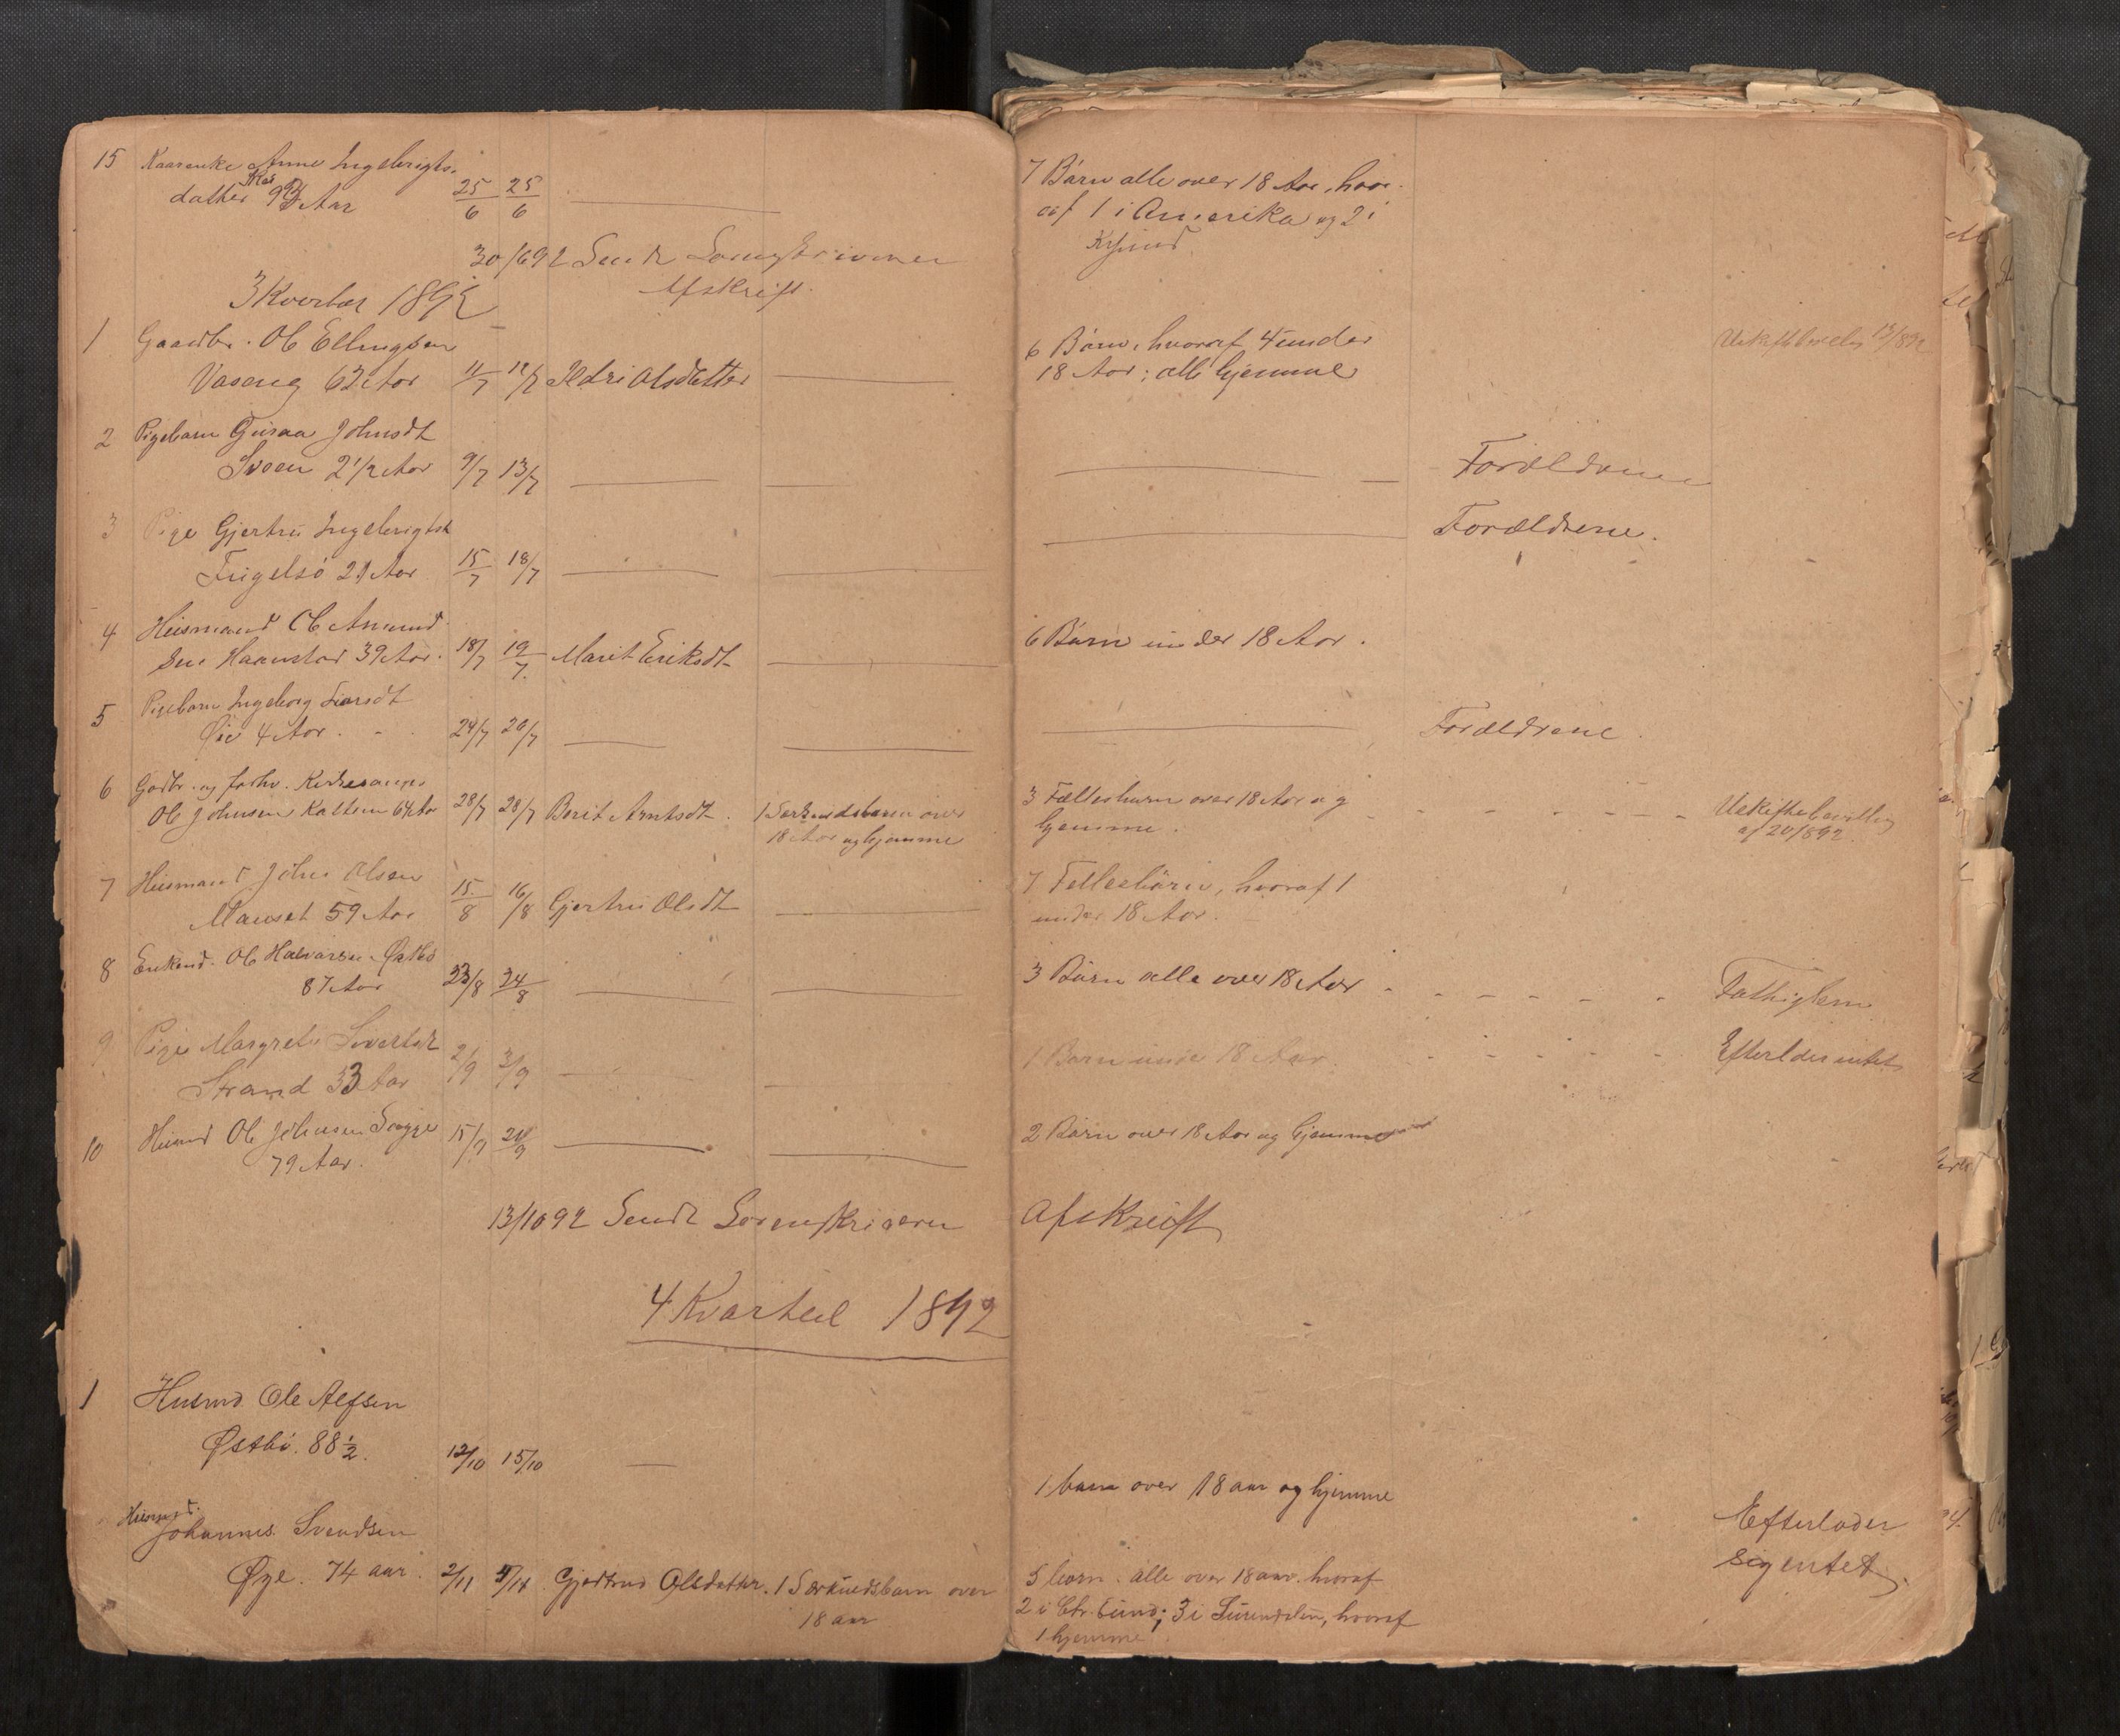 15 Kaarenke Anne Ingebrigts-
datter 93 Aar 25/6 25/6
7 Børn alle over 18 Aar, hvor-
af 1 i Amerika og 2 i
Krsund
30/6 92 Sendt Sorenskriveren
Afskrift.
3 Kvartal 1892
1 Gaardbr. Ole Ellingsen
Vaseng 62 Aar 11/7 12/7 Ildri Olsdatter
6 Børn, hvoraf 4 under
18 Aar; alle hjemme
2 Pigebarn Guraa Johnsdt
Sveen 2 1/2 Aar 9/7 13/7
Forældrene
3 Pige Gjertru Ingebrigtsdt
21 Aar 15/7 18/7
Forældrene.
4 Husmand Ole Amund
sen Haanstad 39 Aar. 18/7 19/7 Marit Eriksdt
6 Børn under 18 Aar.
5 Pigebarn Ingeborg Larsdt
Øie 4 Aar. 24/7 26/7
Forældrene.
6 Gadbr. og forhv. Kirkesanger
Ole Johnsen Kattem 64 Aar 28/7 28/7 Berit Arntsdt. 1 Særkuldsbarn over
18 Aar og hjemme
3 Fællesbørn over 18 Aar og
hjemme.
Uskiftebevilling
af 20/8 92.
7 Husmand John Olsen
Mauset 59 Aar 15/8 16/8 Gjertru Olsdt
7 Fellesbørn, hvoraf 1
under 18 Aar.
8 Enkemd. Ole Halvorsen Østbø
87 Aar 23/8 24/8
3 Børn alle over 18 Aar
Fattiglem
9 Pige Margrete Sivertsdt
Strand 33 Aar 2/9 3/9
1 Barn under 18 Aar.
Efterlader intet
10 Husmd Ole Johnsen Sogge
79 Aar. 15/9 21/9
2 Børn over 18 Aar og hjemme
13/10 92 Sendt Sorenskriveren Afskrift
4 Kvartal 1892
1 Husmd Ole Alfsen
Østbø. 88 1/2. 12/10 15/10
1 barn over 18 aar og hjemme
Husmd.
Johannes Svendsen
Øye. 74 aar. 2/11 5/11. Gjertrud Olsdatter. 1 Særkuldsbarn over
18 aar
5 børn. alle over 18 aar. hvoraf
2 i Chr.sund; 3 i Surendalen, hvoraf
1 hjemme.
Efterlader
sig entet.